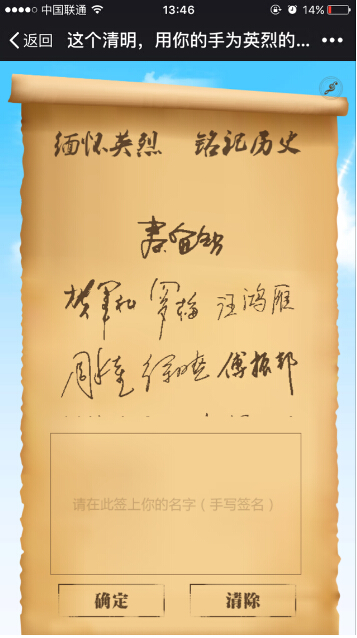 中国联通 13:46 14%
返回 这个清明，用你的手为英烈的...
缅怀英烈 铭记历史
汪鸿雁
徐晓 傅振邦
请在此签上你的名字（手写签名）
确定 清除